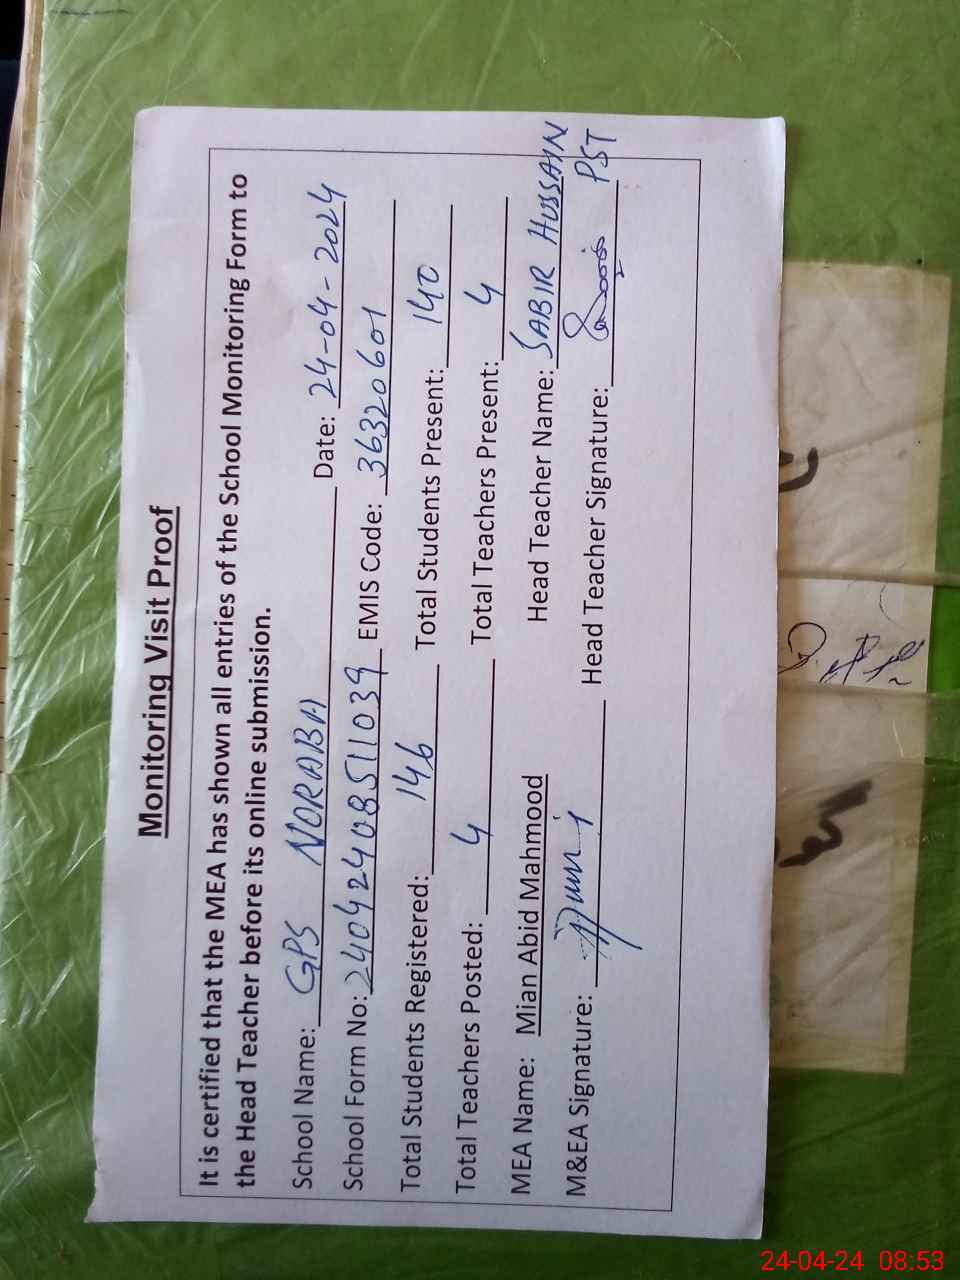 Monitoring Visit Proof
It is certified that the MEA has shown all entries of the School Monitoring Form to
the Head Teacher before its online submission.
School Name: GPS NORABA Date: 24-04-2024
School Form No: 24042408511039 EMIS Code: 36320601
Total Students Registered: 146 Total Students Present: 140
Total Teachers Posted: 4 Total Teachers Present: 4
MEA Name: Mian Abid Mahmood Head Teacher Name: SABIR HUSSAIN
M&EA Signature: Head Teacher Signature: PST
24-04-24 08:53